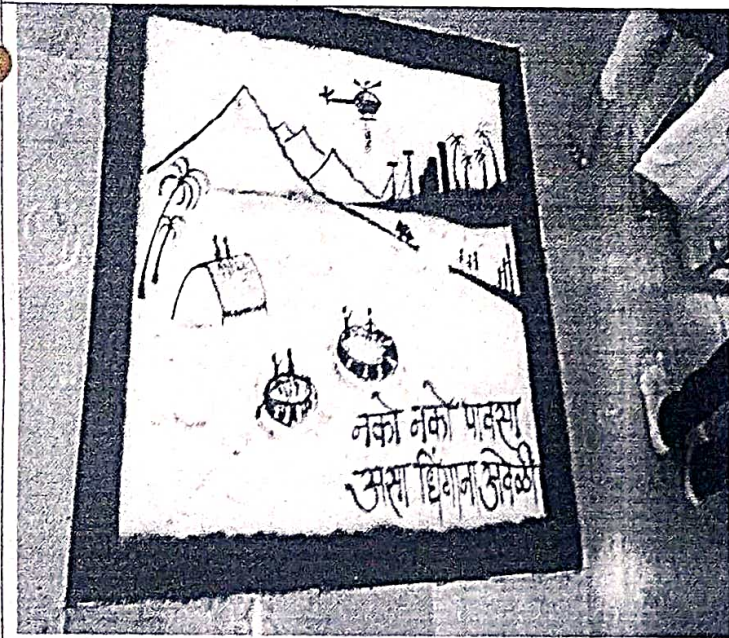 नको नको पावसा
असा धिंगाना अवेळी